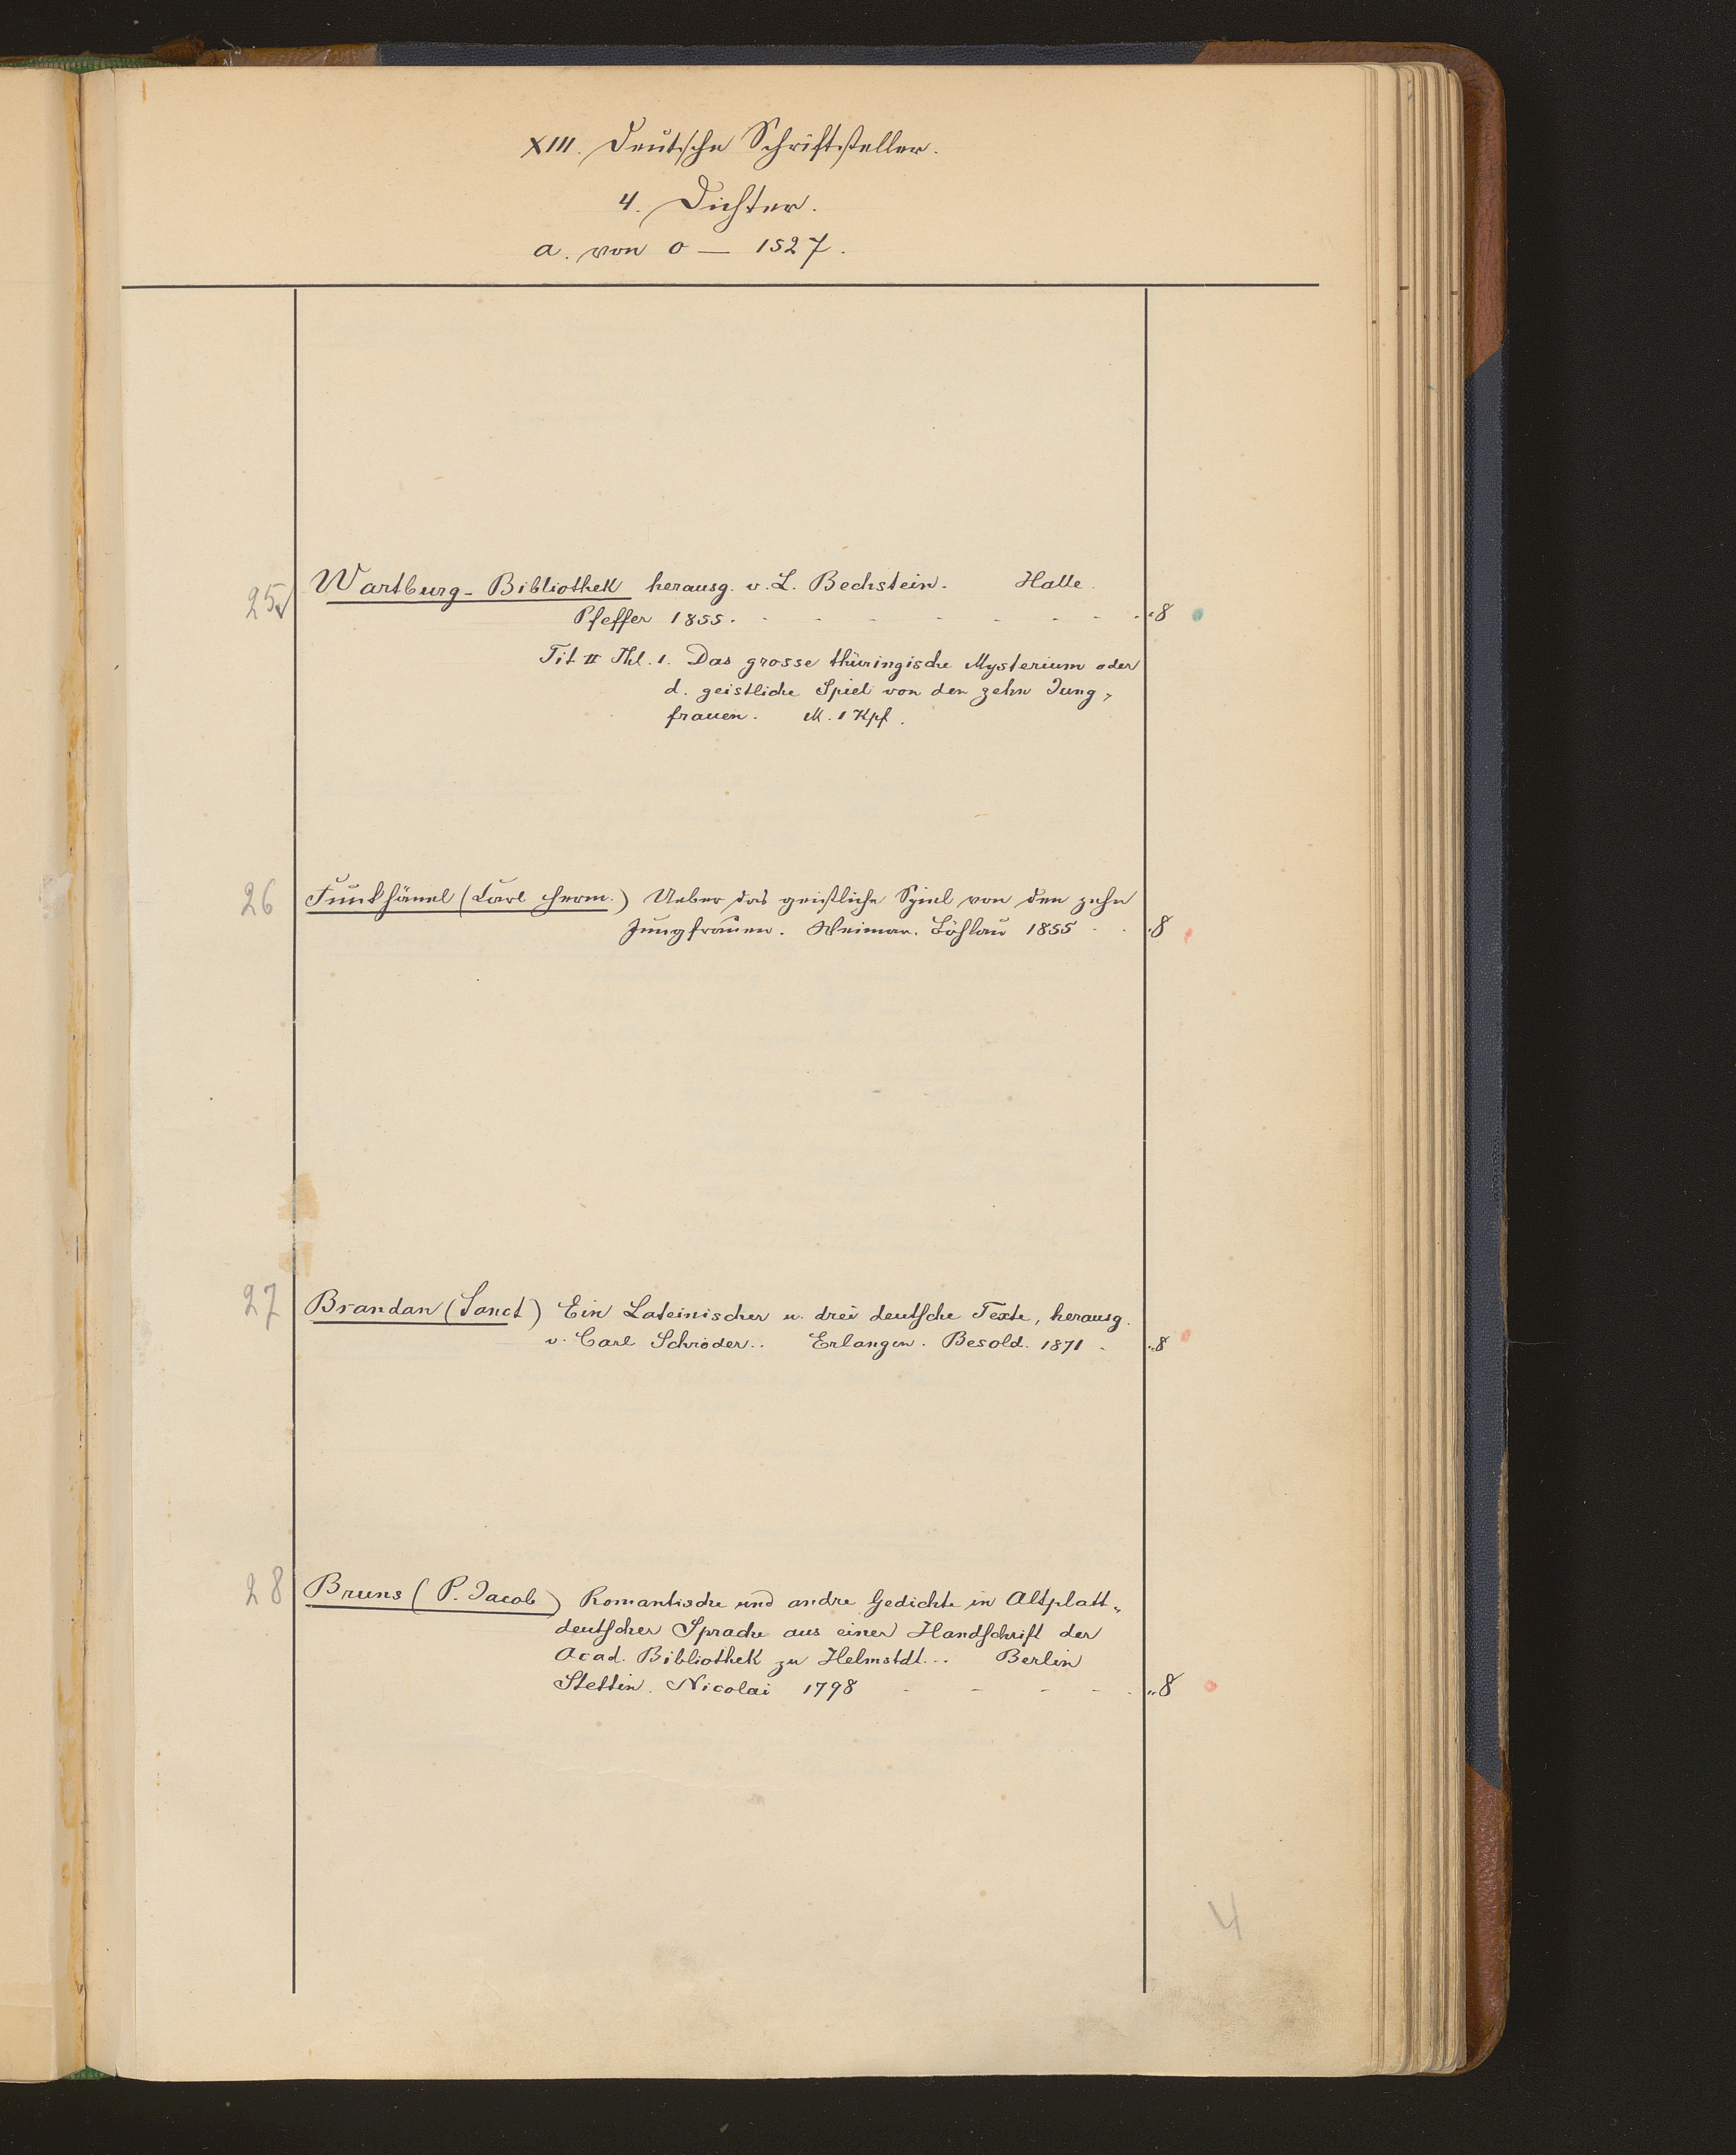 XIII. Deutsche Schriftsteller.
4. Dichter.
a. von 0 — 1527.
25 Wartburg-Bibliothek herausg. v. L. Bechstein. Halle.
Pfeffer 1855. - - - - - - - 8
Tit II Thl. 1. Das grosse thüringische Mysterium oder
d. geistliche Spiel von den zehn Jung-
frauen. M. 1 Kpf.
26 Funkhänel (Carl Herm.) Ueber das geistliche Spiel von den zehn
Jungfrauen. Weimar. Böhlau 1855 - - 8
27 Brandan (Sanct) Ein Lateinischer u. drei deutsche Texte, herausg.
v. Carl Schröder.. Erlangen. Besold. 1871 - 8
28 Bruns (P. Jacob) Romantische und andre Gedichte in Altplatt-
deutscher Sprache aus einer Handschrift der
Acad. Bibliothek zu Helmstdt... Berlin
Stettin. Nicolai 1798 - - - - 8
4